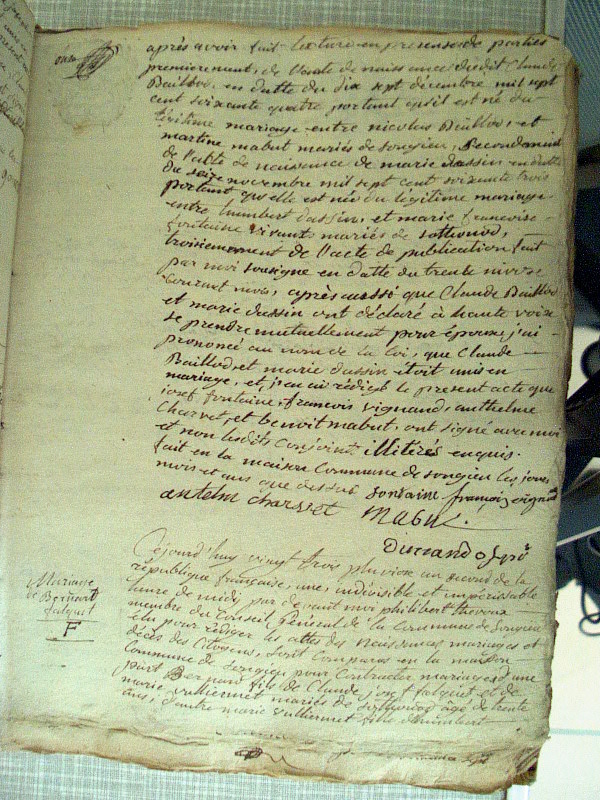 onze
après avoir fait lecture en presence de parties
premierement, de l'acte de naissance dudit Claude
Baillod, en datte du dix sept décembre mil sept
cent soixante quatre portant qu'il est né du
légitime mariage entre nicolas Baillod, et
martine mabut mariés de songieu, secondement
de l'acte de naissance de marie dassin en datte
du seize novembre mil sept cent soixante trois
portant qu'elle est née du légitime mariage
entre humbert dassin, et marie francoise
fontaine vivants mariés de sothonod,
troisiemement de l'acte de publication fait
par moi sousigné en datte du trente
courant mois, après aussi que Claude Baillod
et marie dassin ont déclaré à haute voix
se prendre mutuellement pour époux, j'ai
prononcé au nom de la loi, que Claude
Baillod, et marie dassin étoit unis en
mariage, et j'en ai rédigé le present acte que
josef fontaine, francois vignand, anthelme
Charvet, et benoit mabut, ont signé avec moi
et non lesdits Conjoint illitérés enquis.
fait en la maison Commune de songieu les jours
mois et ans que dessus fontaine françois vignand
antelm charvet mabut
Cejourd'huy vingt trois pluviose an second de la
république française, une, indivisible et impérissable
heure de midi, par devant moi philibert
membre du Conseil Général de la Commune de Songieu
élu pour rédiger les actes des Naissances mariages et
décès des Citoyens, sont Comparus en la maison
Commune de Songieu pour Contracter mariage d'une
part Bernard fils de Claude josef falquet et de
marie vulliermet mariés de sothonod agé de trente
ans, d'autre marie vulliermet fille d'humbert
Mariage
de Bernard
falquet
F